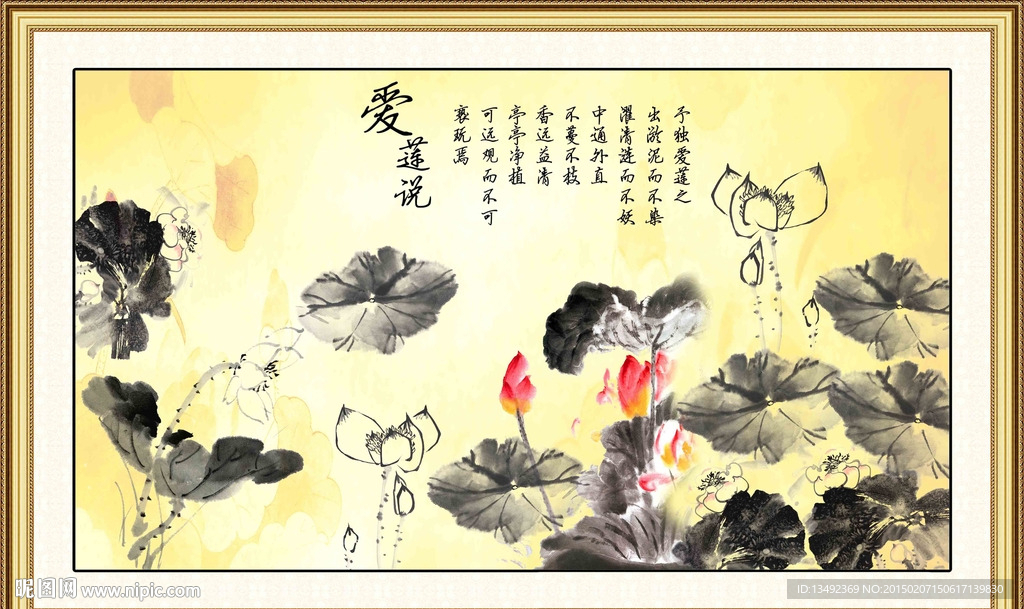 爱莲说
予独爱莲之
出淤泥而不染
濯清涟而不妖
中通外直
不蔓不枝
香远益清
亭亭净植
可远观而不可
亵玩焉
昵图网 www.nipic.com
ID:13492369 NO:20150207150617139830